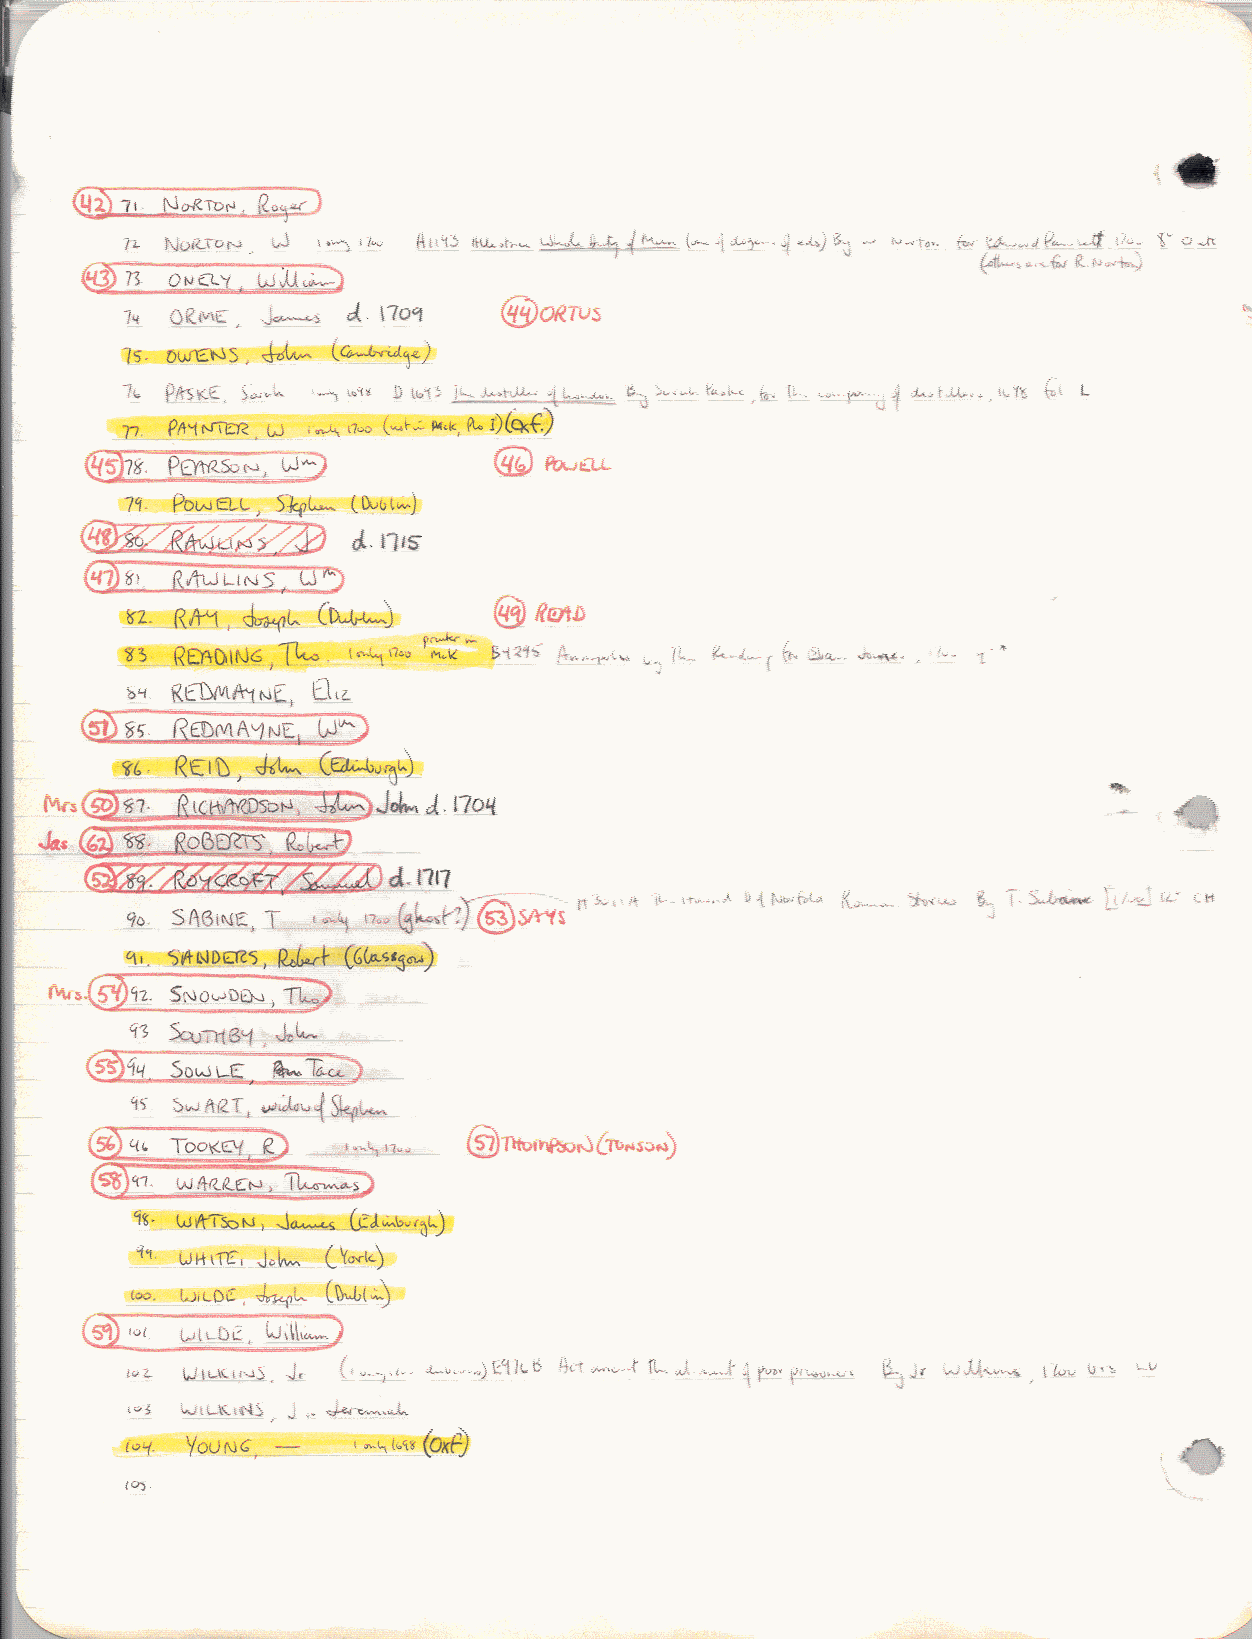 42 71. NORTON, Roger
72 NORTON, W 1 only 1700 A1143 Allestree Whole Duty of Man (one of dozens of eds) By W Norton for Edward Pawlett 1700 8°
(others are for R. Norton)
43 73 ONELY, William
74 ORME, James d. 1709 44 ORTUS
75. OWENS, John (Cambridge)
76 PASKE, Sarah 1 only 1698 D 1693 The distiller of London By Sarah Paske, for the company of distillers, 1698 fol L
77. PAYNTER, W 1 only 1700 (not in McK, Plo I) (Oxf.)
45 78. PEARSON, Wm 46 POWELL
79. POWELL, Stephen (Dublin)
48 80. RAWLINS, J d. 1715
47 81 RAWLINS, Wm
82. RAY, Joseph (Dublin) 49 READ
83 READING, Tho. 1 only 1700 printer in McK B4295 by Tho. Reading for
84. REDMAYNE, Eliz
51 85. REDMAYNE, Wm
86. REID, John (Edinburgh)
Mrs 50 87. RICHARDSON, John John d. 1704
Jas. 62 88. ROBERTS, Robert
52 89. ROYCROFT, Samuel d. 1717
90. SABINE, T 1 only 1700 (ghost?) 53 SAYS of Norfolk Stories By T. Sabine [1700] 12° CH
91. SANDERS, Robert (Glasgow)
Mrs. 54 92. SNOWDEN, Tho
93 SOUTHBY, John
55 94. SOWLE, Tace
95 SWART, widow of Stephen
56 96 TOOKEY, R 1 only 1700 57 THOMPSON (TONSON)
58 97. WARREN, Thomas
98. WATSON, James (Edinburgh)
99. WHITE, John (York)
100. WILDE, Joseph (Dublin)
59 101 WILDE, William
102 WILKINS, Jr E916B Act of poor prisoners By Jr Wilkins, 1700
103 WILKINS, J .. Jeremiah
104. YOUNG, — 1 only 1698 (Oxf)
105.